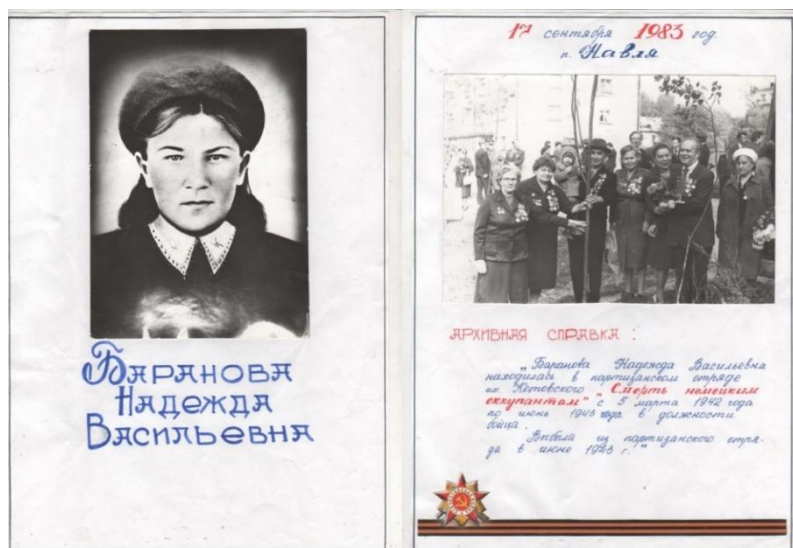 Баранова
Надежда
Васильевна
17 сентября 1983 год.
п. Навля
АРХИВНАЯ СПРАВКА :
„Баранова Надежда Васильевна
находилась в партизанском отряде
им. Котовского "Смерть немецким
оккупантам" с 5 марта 1942 года
по июнь 1943 года в должности
бойца.
Выбыла из партизанского отря-
да в июне 1943 г."